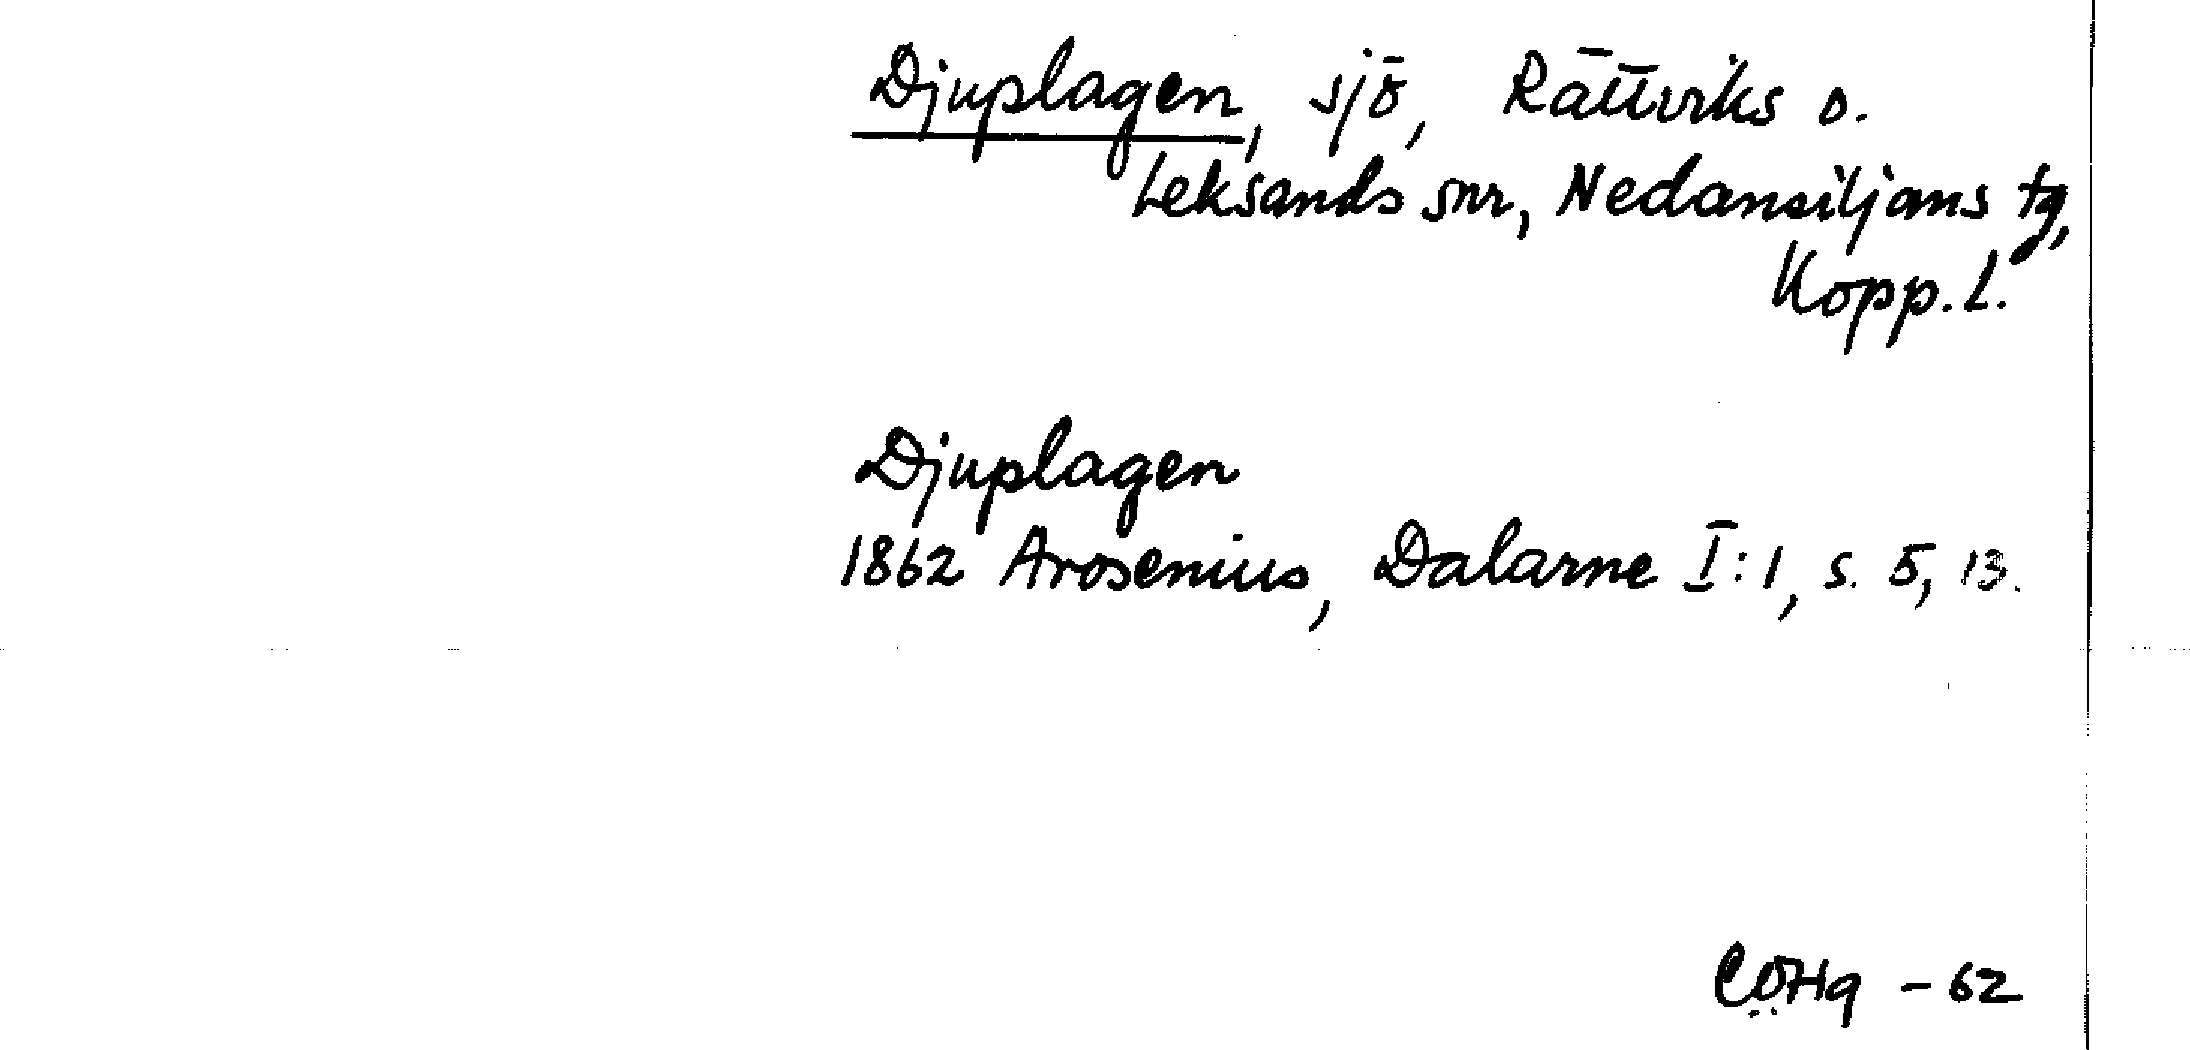 Djuplagen, sjö, Rättviks o.
Leksands snr, Nedansiljans tg,
Kopp. l.
Djuplagen
1862 Arosenius, Dalarne I:1, s. 5, 13.
CÖHg - 62